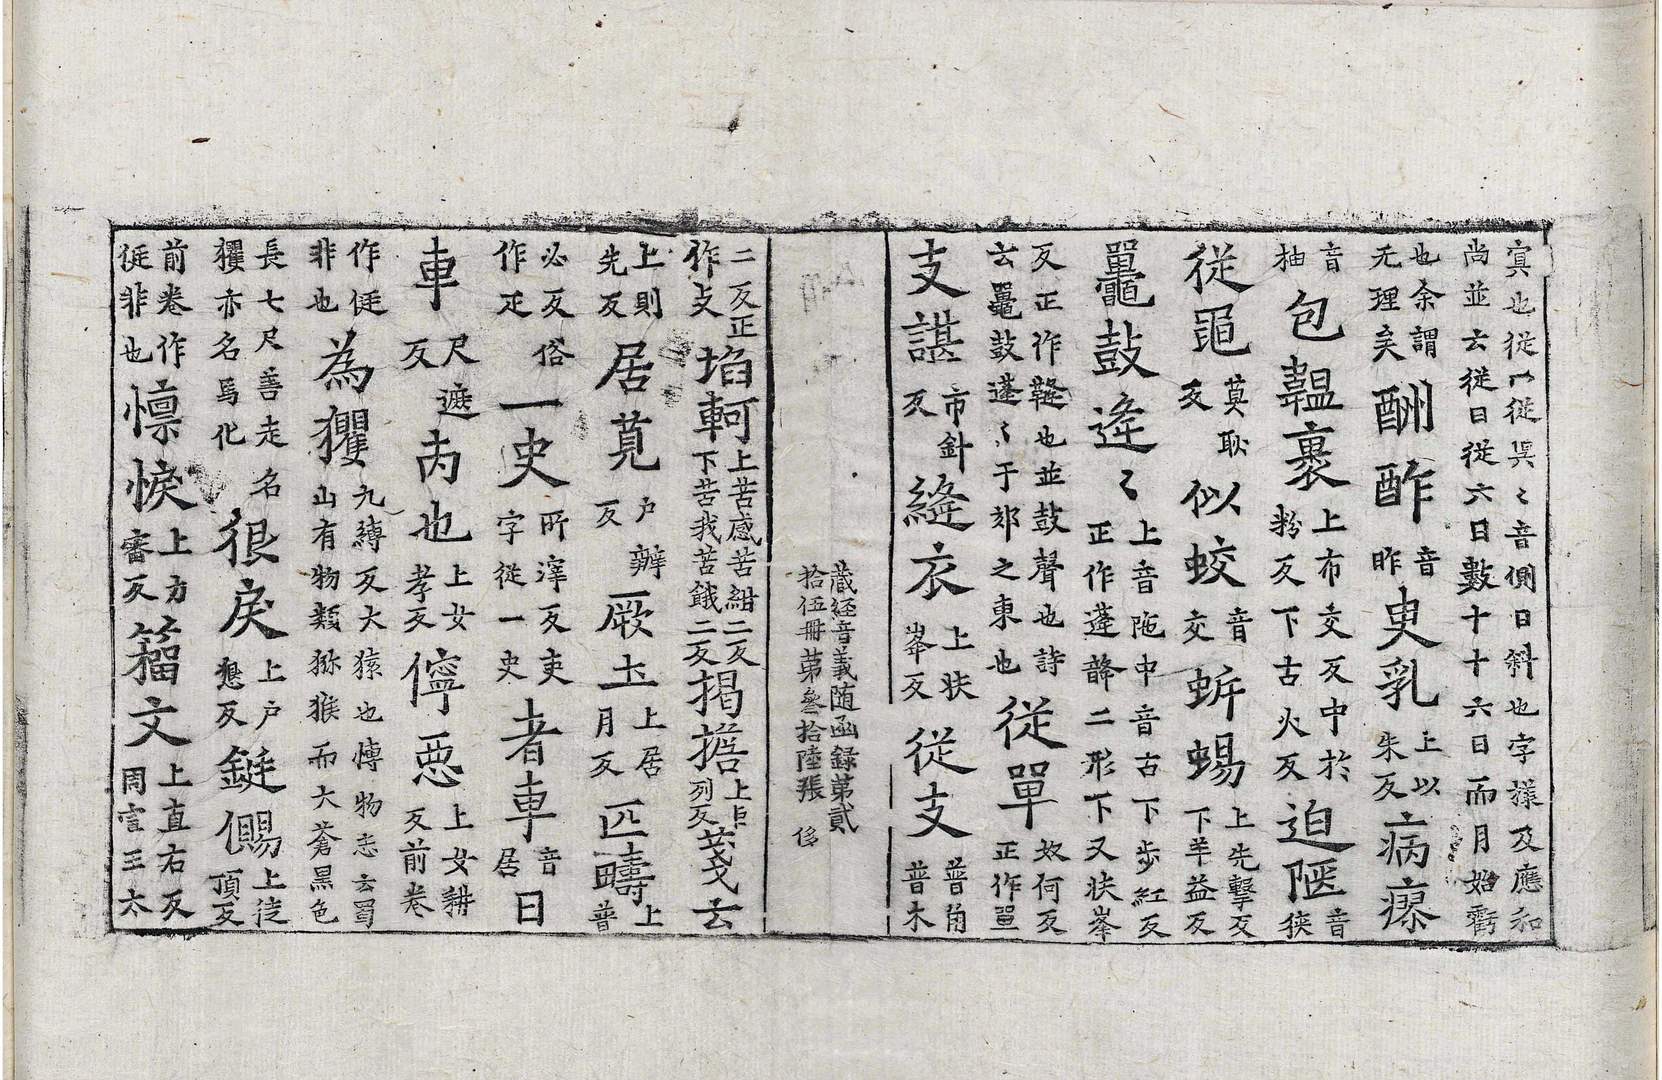 㝠也従冖従㫤〻音側日斜也字㨾及應和
尚並云従日従六日數十十六日而月始虧
也余謂
无理矣
酬酢
音
昨
㕜乳
上以
朱反
病瘵
音
柚
包韞裹
上布交反中於
粉反下古火反
迫陿
音
狹
従黽
莫耿
反
似蛟
音
交
蚸蜴
上先擊反
下羊益反
鼉鼓逄〻
上音陁中音古下步紅反
正作蓬韸二形下又扶峯
反正作韼也並鼓聲也詩
云鼉鼓蓬〻于郊之東也
従單
奴何反
正作單
支諶
市針
反
縫衣
上扶
峯反
従攴
普角
普木
藏経音義随函録第貳
拾伍冊第叄拾陸張 侈
二反正
作攴
埳軻
上苦感苦紺二反
下苦我苦餓二反
揭擔
上巨
列反
䇳云
上則
先反
居莧
戶辦
反
厥㐀
上居
月反
匹疇
上
普
必反俗
作疋
一史
所滓反吏
字從一史
者車
音
居
日
車
尺遮
反
丙也
上女
孝反
儜惡
上女耕
反前卷
作㹵
非也
為玃
九縛反大猿也慱物志云蜀
山有物類猕猴而大蒼黒色
長七尺善走名
玃亦名馬化
很戾
上戶
懇反
鋌儩
上徒
頂反
前卷作
㹵非也
懍悷
上力
審反
籕文
上直右反
周宣王太